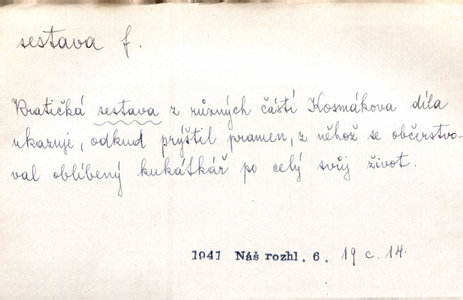 sestava f.
Kratičká sestava z různých částí Kosmákova díla
ukazuje, odkud prýštil pramen, z něhož se občerstvo-
val oblíbený kukátkář po celý svůj život.
1941 Náš rozhl. 6. 19 c. 14.